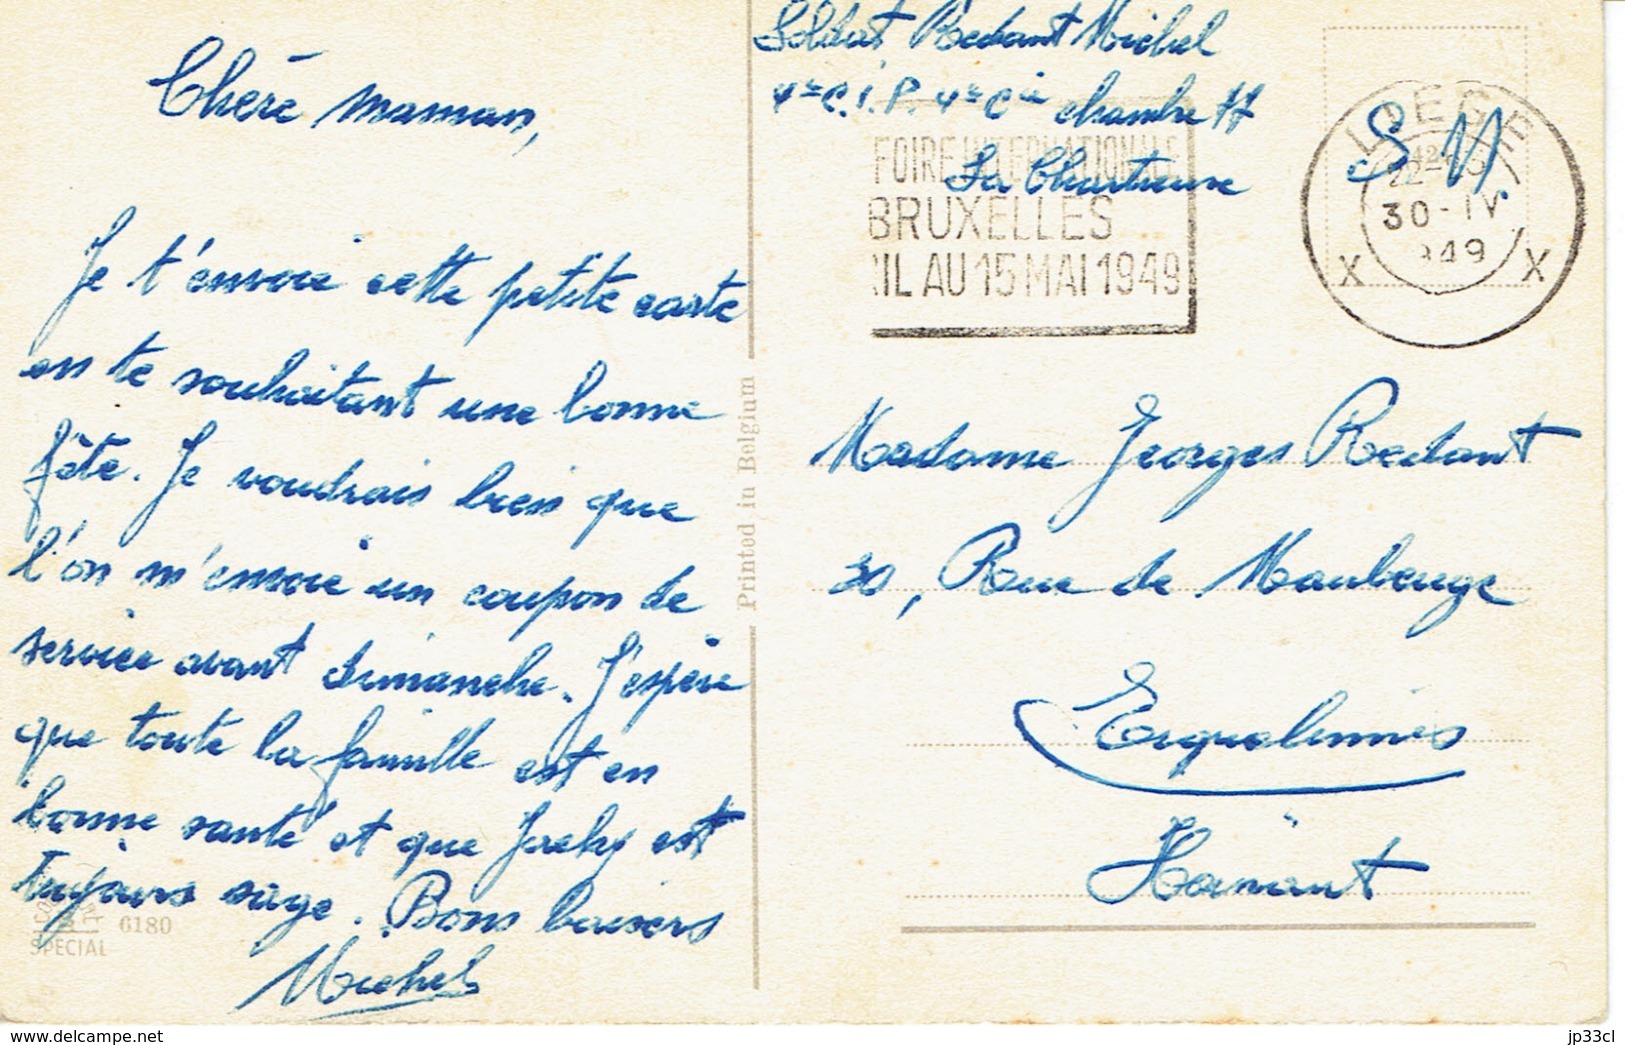 Chère maman,
Je t'envoie cette petite carte
en te souhaitant une bonne
fête. Je voudrais bien que
l'on m'envoie un coupon de
service avant dimanche. J'espère
que toute la famille est en
bonne santé et que Jacky est
toujours sage. Bons baisers
Michel
SPECIAL
6180
Printed in Belgium
Soldat Redant Michel
4e C.I.P. 4e Cie chambre 11
La Chartreuse
S.M.
FOIRE INTERNATIONALE
BRUXELLES
RIL AU 15 MAI 1949
LIEGE
30-IV
1949
X X
Madame Georges Redant
30, Rue de Maubeuge
Erquelinnes
Hainaut
jp33cl
www.delcampe.net